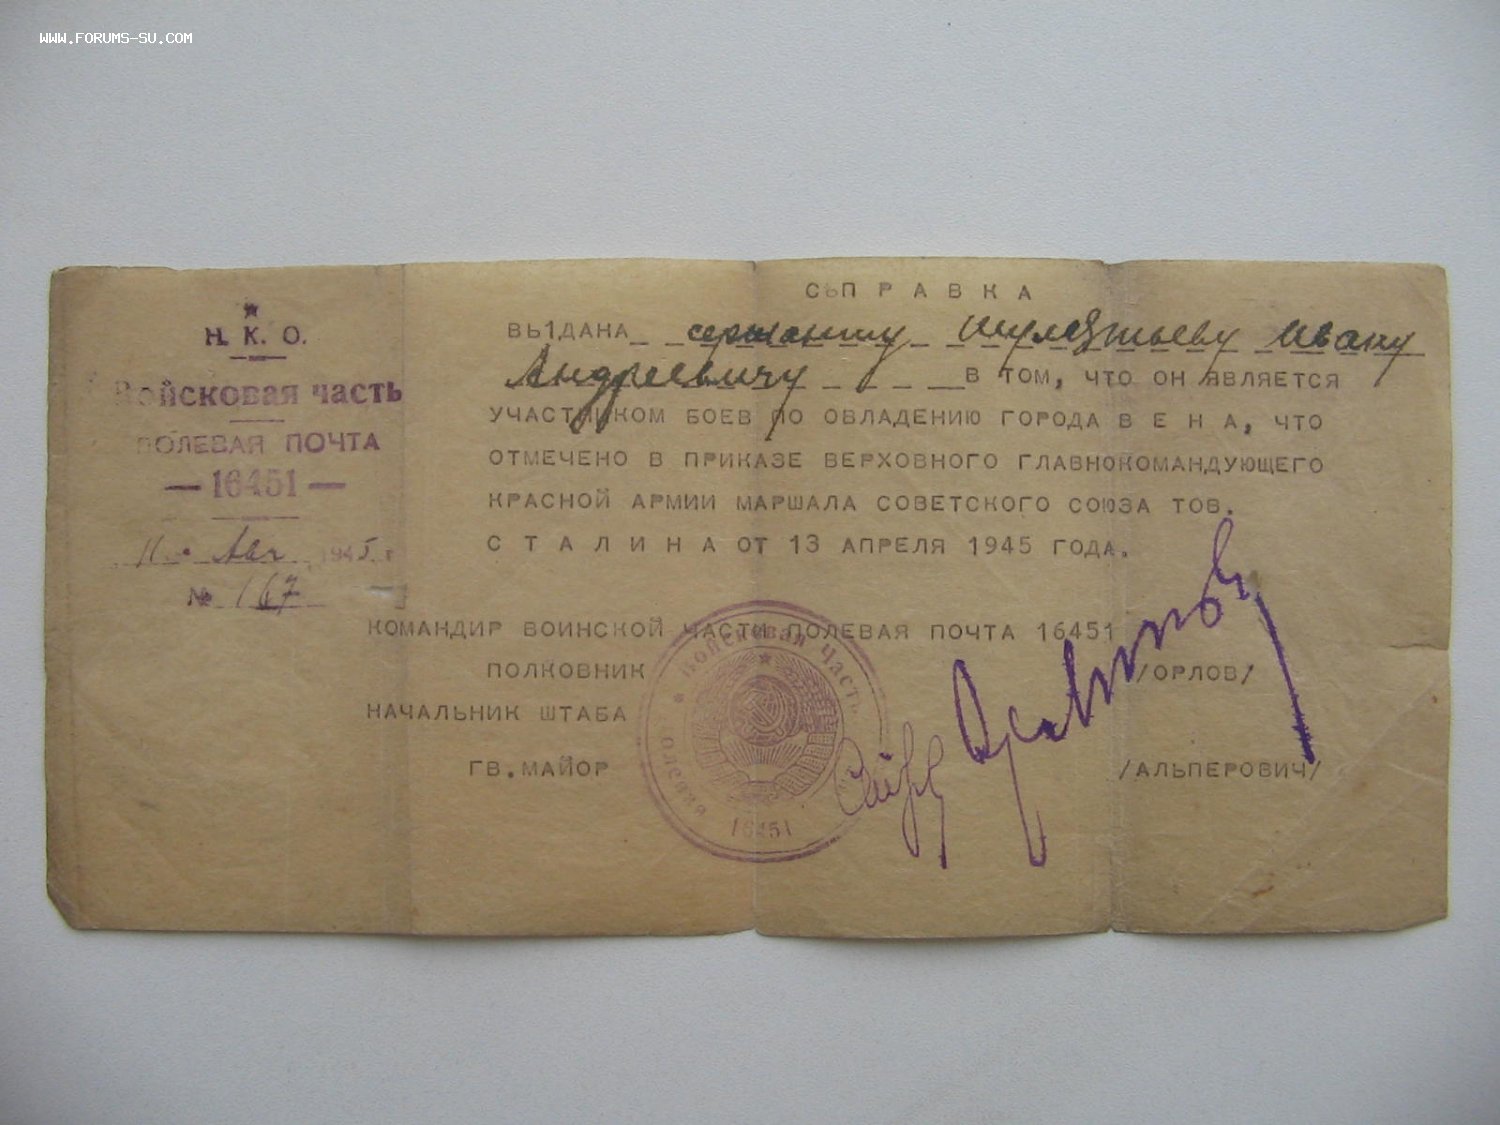 WWW.FORUMS-SU.COM
Н. К. О.
Войсковая часть
ПОЛЕВАЯ ПОЧТА
— 16451 —
11 • Авг 1945 г
№ 167
СПРАВКА
ВЫДАНА сержанту Ивану
Андреевичу В ТОМ, ЧТО ОН ЯВЛЯЕТСЯ
УЧАСТНИКОМ БОЕВ ПО ОВЛАДЕНИЮ ГОРОДА ВЕНА, ЧТО
ОТМЕЧЕНО В ПРИКАЗЕ ВЕРХОВНОГО ГЛАВНОКОМАНДУЮЩЕГО
КРАСНОЙ АРМИИ МАРШАЛА СОВЕТСКОГО СОЮЗА ТОВ.
СТАЛИНА ОТ 13 АПРЕЛЯ 1945 ГОДА.
КОМАНДИР ВОИНСКОЙ ЧАСТИ ПОЛЕВАЯ ПОЧТА 16451
ПОЛКОВНИК /ОРЛОВ/
НАЧАЛЬНИК ШТАБА
ГВ.МАЙОР /АЛЬПЕРОВИЧ/
Войсковая часть
16451